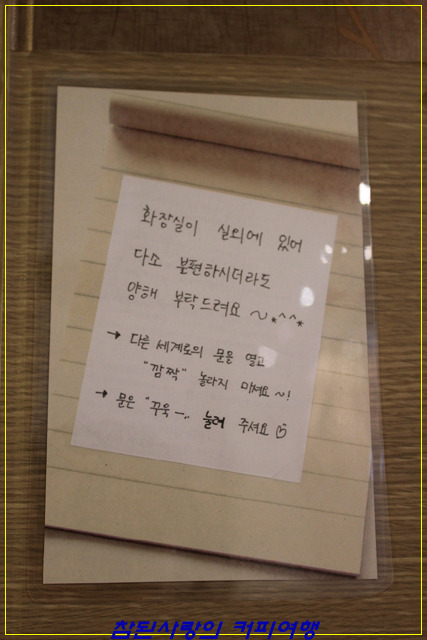 화장실이 실외에 있어
다소 불편하시더라도
양해 부탁드려요 ~*^^*
→ 다른 세계로의 문을 열고
"깜짝" 놀라지 마셔요~!
→ 문은 "꾸욱-.. 눌러 주셔요
참된사랑의 커피여행